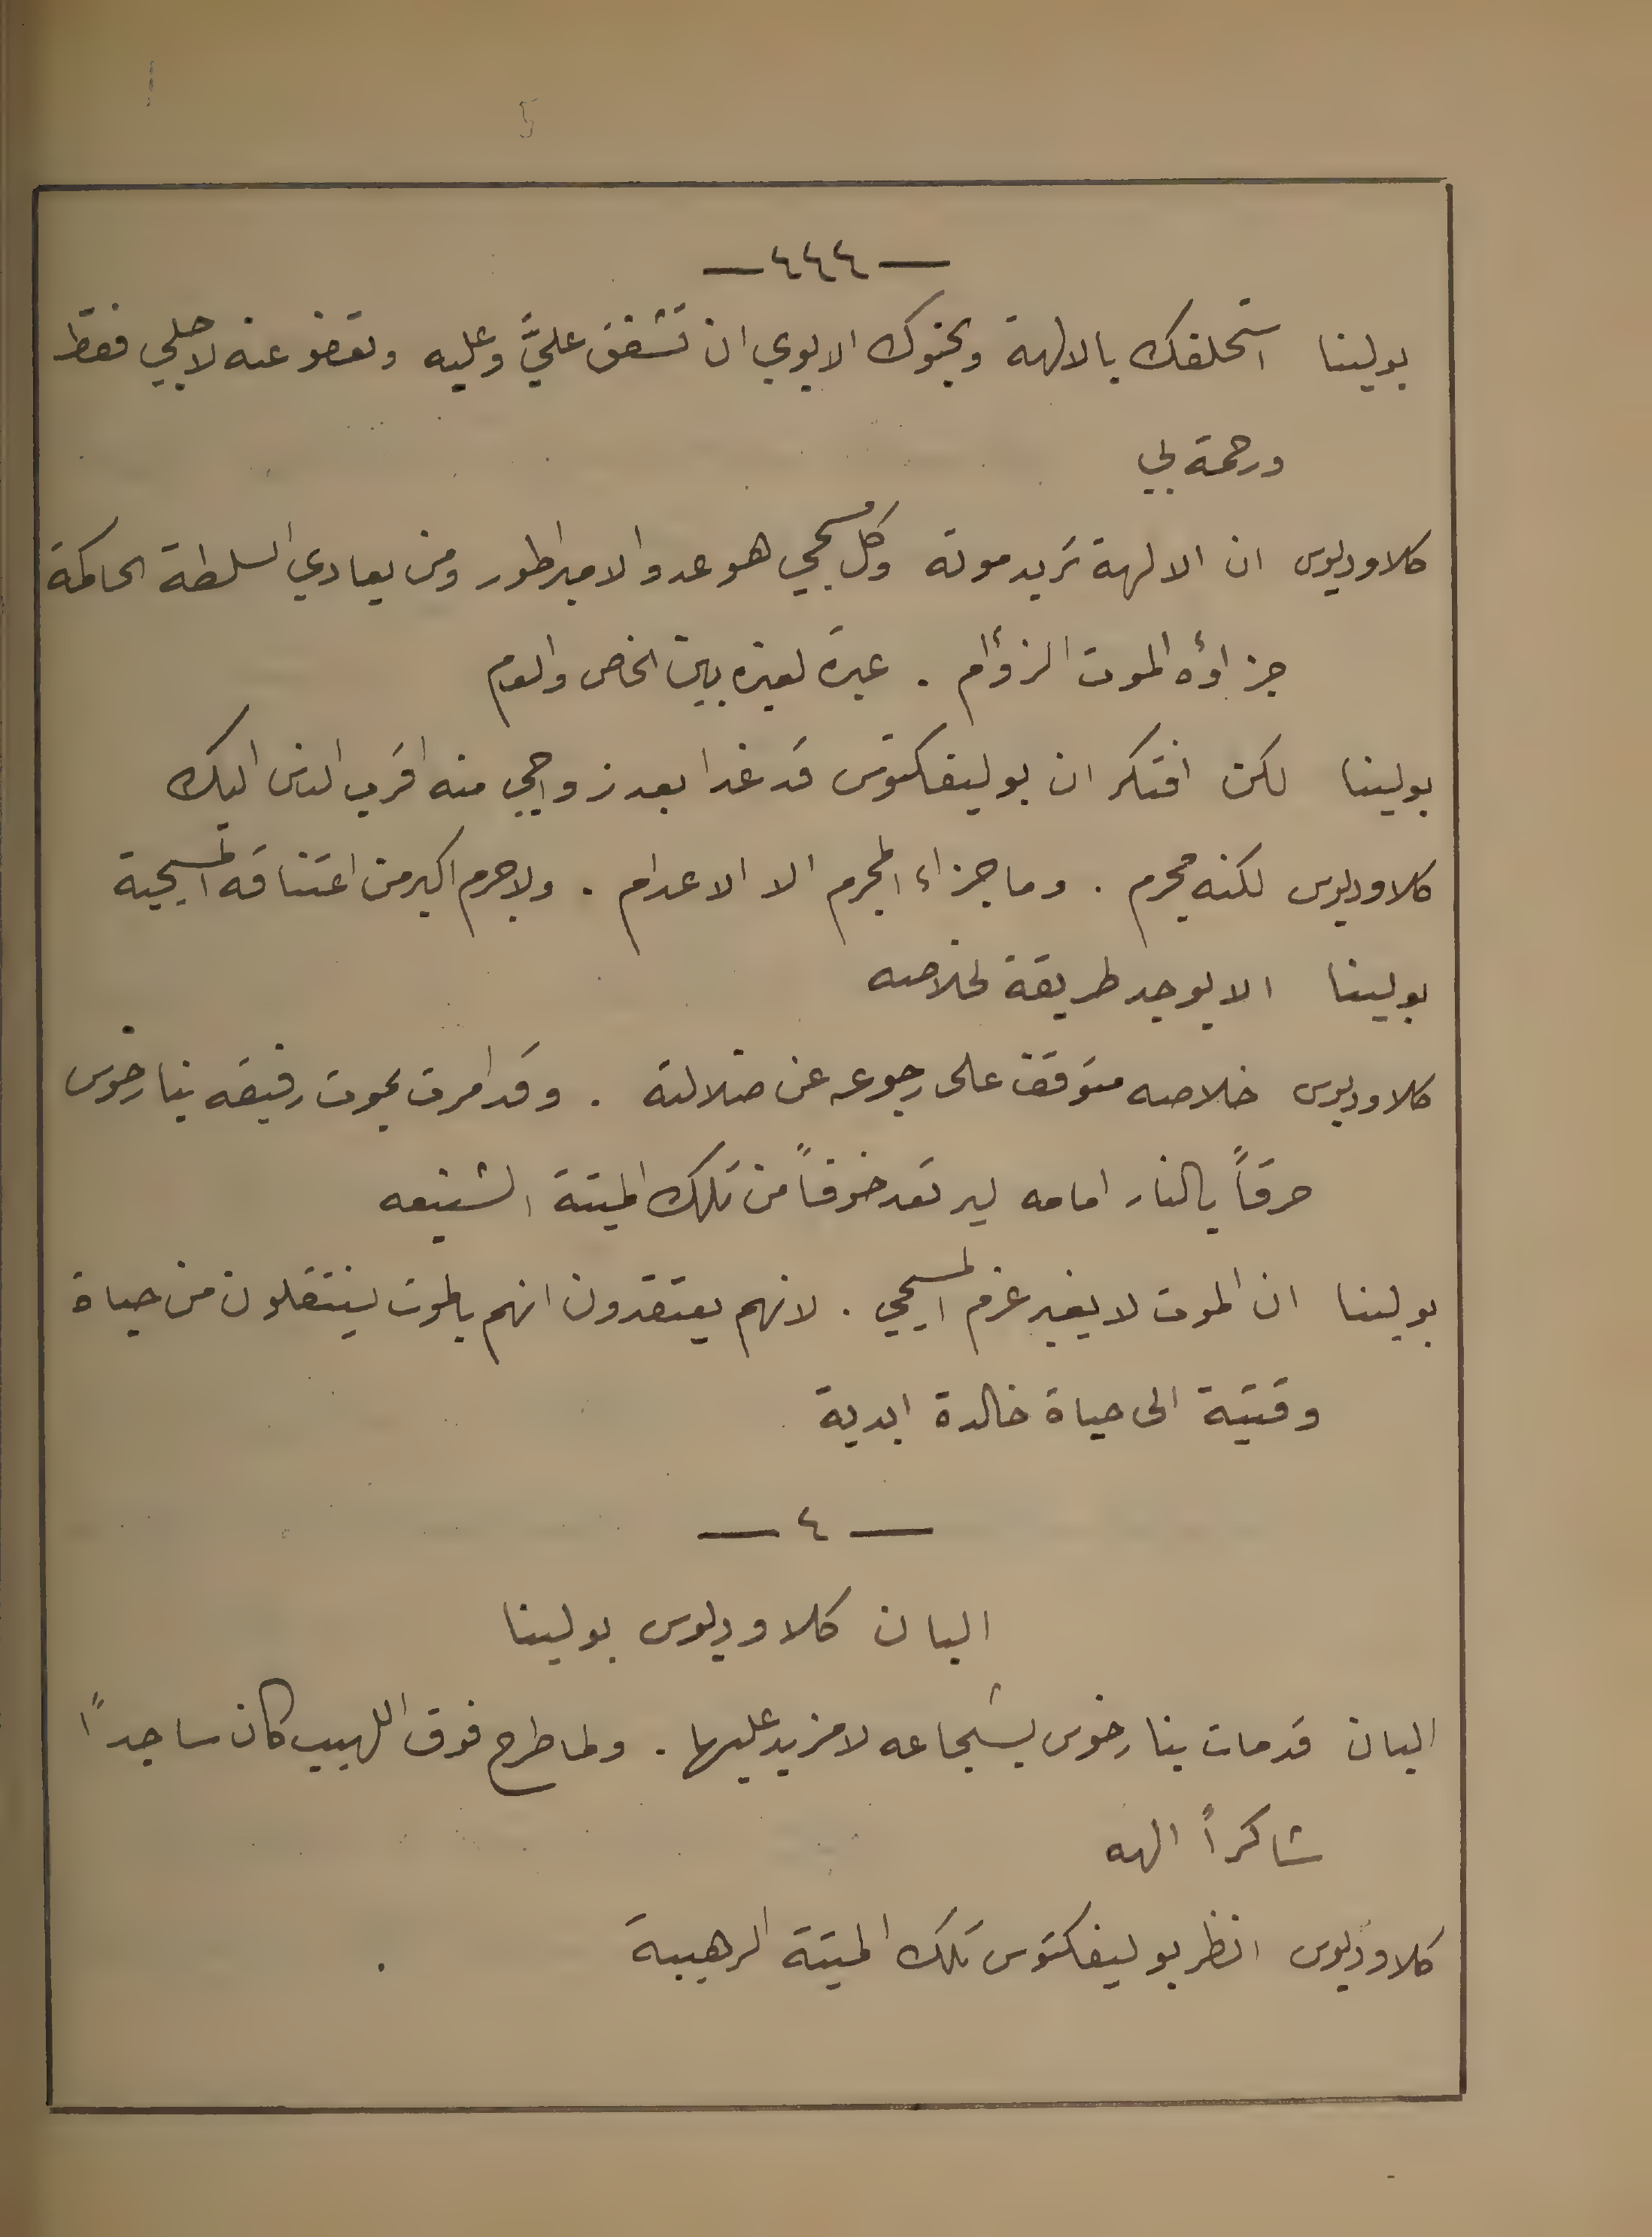 — ٤٤٤ —
بولينا استحلفك بالالهة وبحنوك الابوي ان تشفق عليَّ وعليه وتعفو عنه لاجلي فقط
ورحمة بي
كلاوديوس ان الالهة تريد موته وكل مسيحي هو عدو الامبراطور ومن يعادي السلطة الحاكمة
جزاؤه الموت الزؤام . عبرة لغيره بين الخاص والعام
بولينا لكن افتكر ان بوليفكتوس قد غدا بعد زواجي منه اقرب الناس اليك
كلاوديوس لكنه مجرم . وما جزاء المجرم الا الاعدام . ولا جرم اكبر من اعتناقه المسيحية
بولينا الا يوجد طريقة لخلاصه
كلاوديوس خلاصه متوقف على رجوعه عن ضلالته . وقد امرت بموت رفيقه بنارخوس
حرقاً بالنار امامه ليرتعد خوفاً من تلك الميتة الشنيعه
بولينا ان الموت لا يغير عزم المسيحي . لانهم يعتقدون انهم بالموت ينتقلون من حياة
وقتية الى حياة خالدة ابدية
— ٤ —
البان كلاوديوس بولينا
البان قد مات بنارخوس بشجاعه لا مزيد عليها . ولما طرح فوق اللهيب كان ساجداً
شاكراً الهه
كلاوديوس انظر بوليفكتوس تلك الميتة الرهيبة